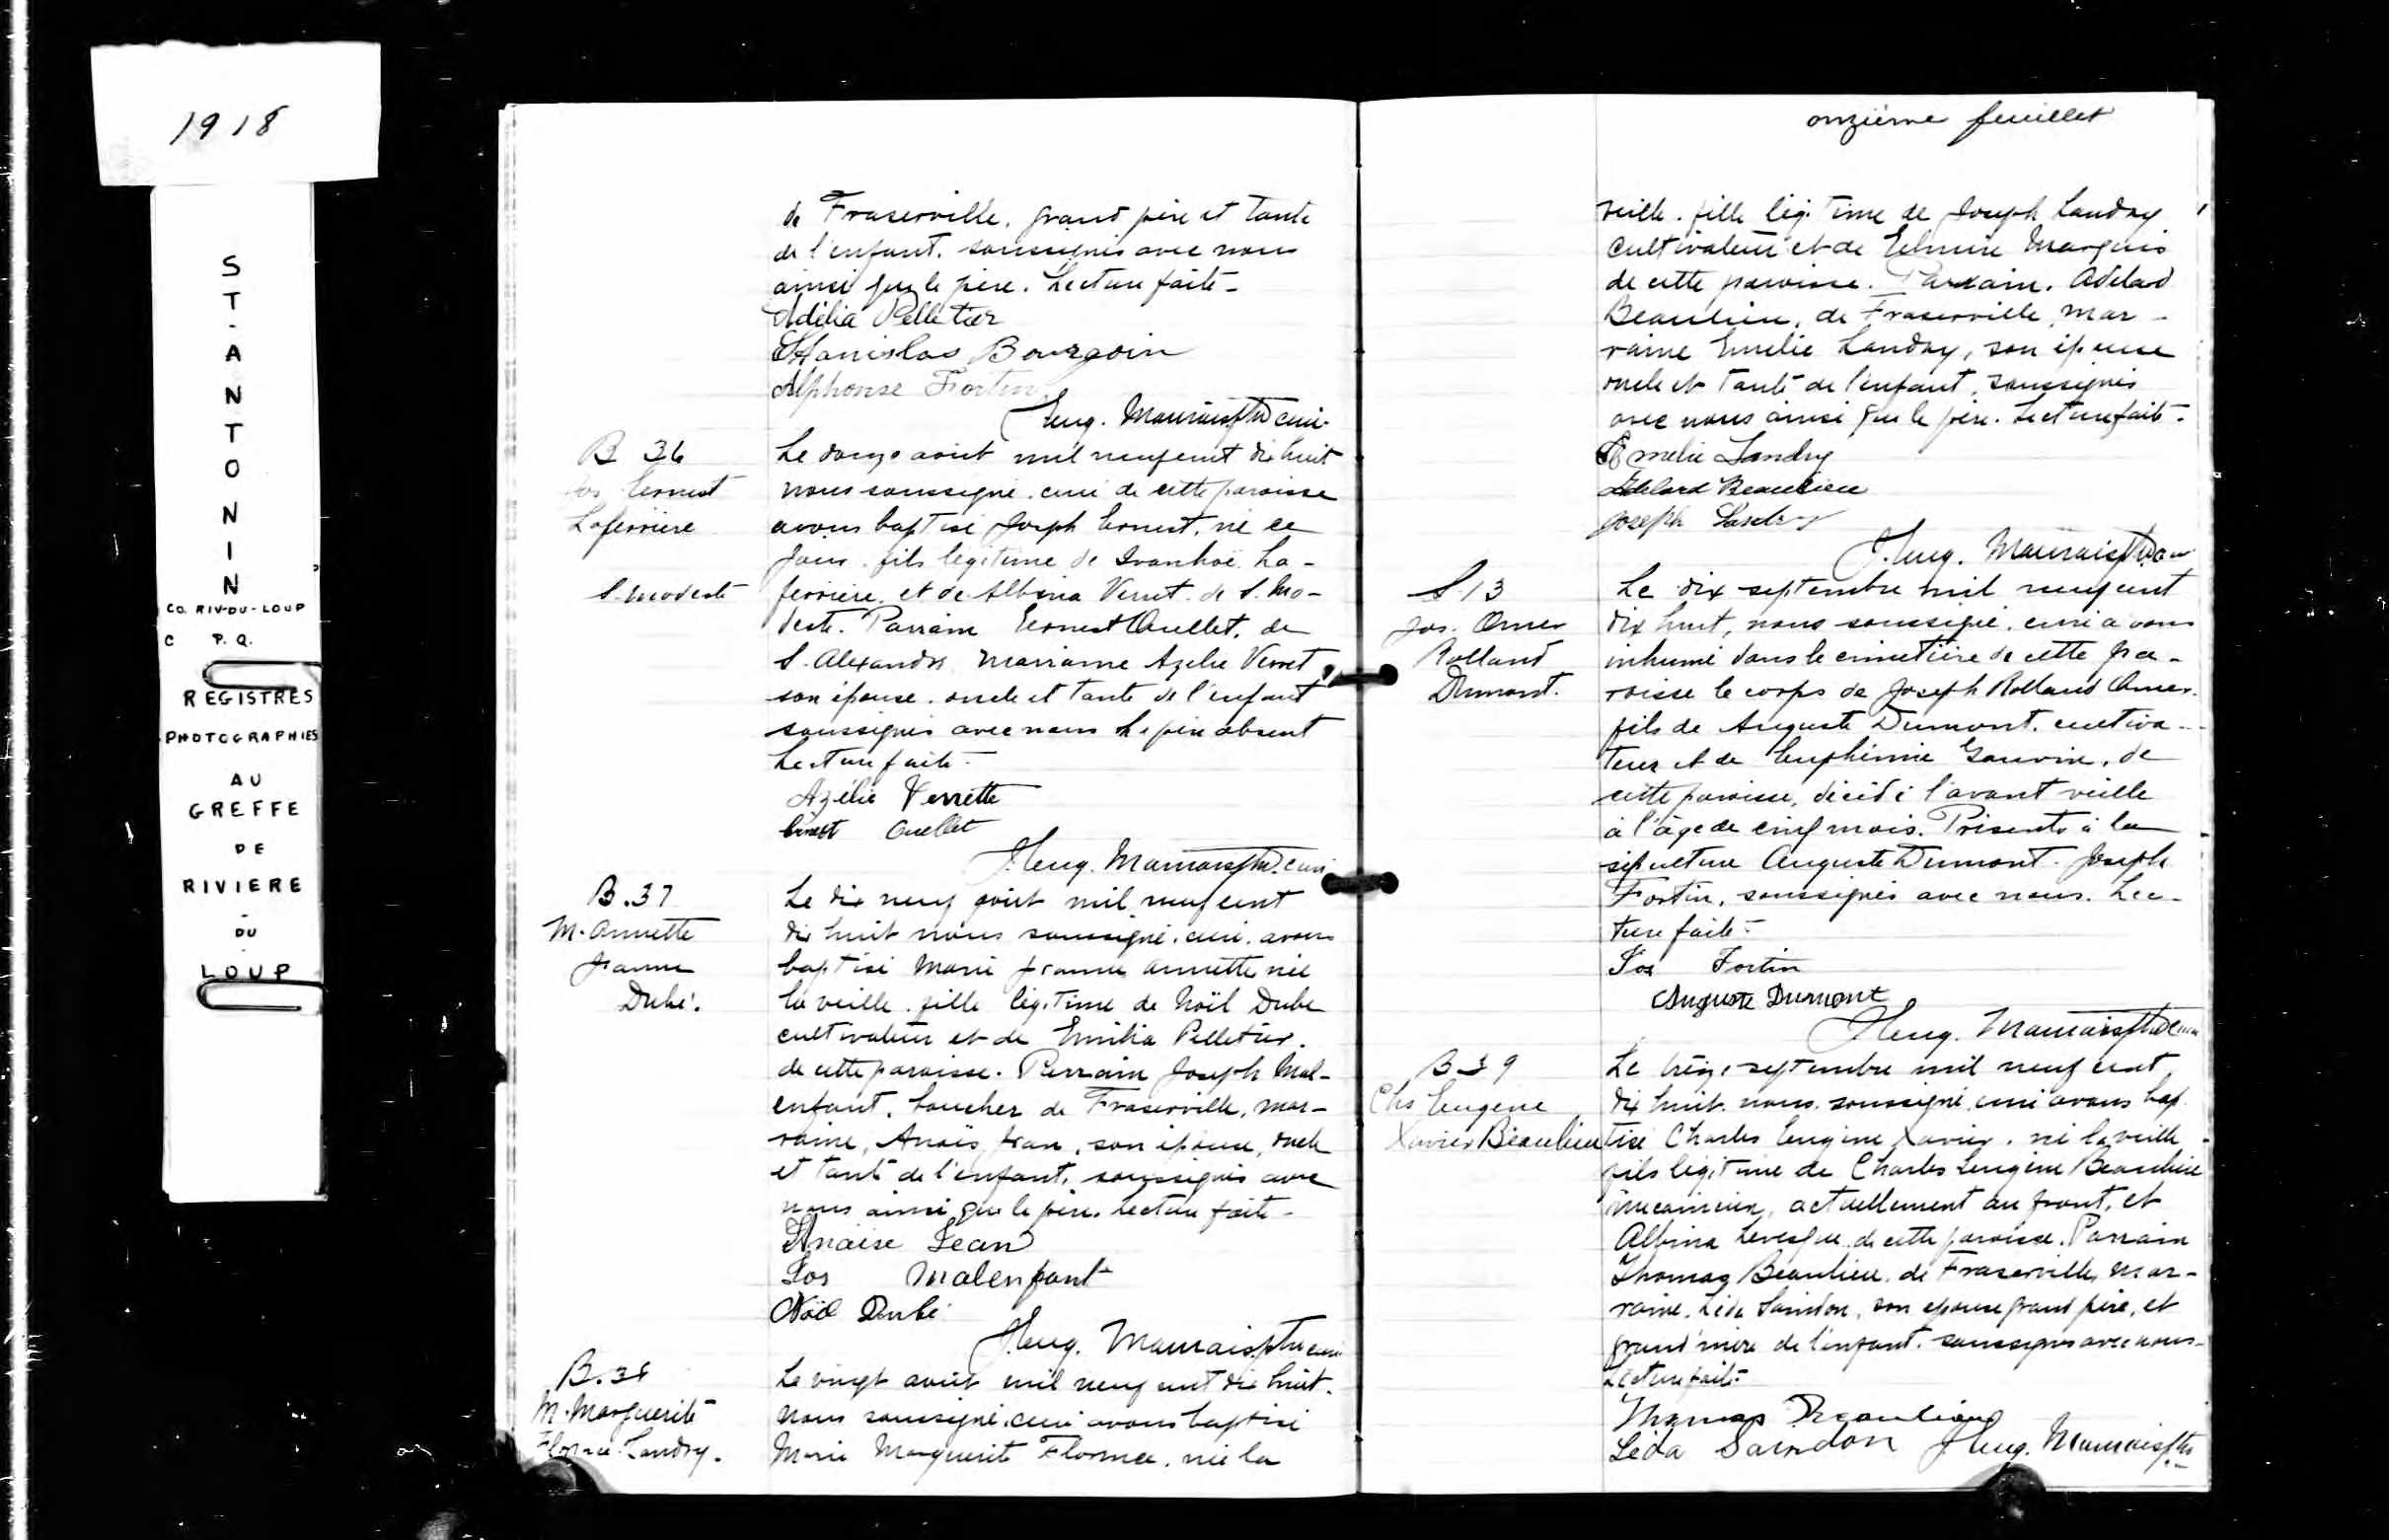 1918
ST-ANTONIN
CO. RIV-DU-LOUP
C P.Q.
REGISTRES
PHOTOGRAPHIES
AU
GREFFE
DE
RIVIERE
-
DU
-
LOUP
de Fraserville, grand père et tante
de l'enfant, soussignés avec nous
ainsi que le père. Lecture faite -
Adélia Pelletier
Stanislas Bourgoin
Alphonse Fortin
J. Eug. Maurais, Ptre curé.
B 36
Jos Ernest
Laferrière
S. Modeste
Le douze août mil neuf cent dix huit
nous soussigné, curé de cette paroisse
avons baptisé Joseph Ernest, né ce
jour, fils légitime de Ivanhoë La-
ferrière, et de Albina Verret, de S. Mo-
deste. Parrain Ernest Ouellet, de
S. Alexandre Marraine Azelie Verret
son épouse, oncle et tante de l'enfant
soussignés avec nous Le père absent
Lecture faite -
Azélie Verrette
Ernest Ouellet
J. Eug. Maurais, Ptre. curé
B. 37
M. Annette
Jeanne
Dubé.
Le dix neuf août mil neuf cent
dix huit nous soussigné, curé, avons
baptisé Marie Jeanne Annette née
la veille, fille légitime de Noël Dubé
cultivateur et de Emilia Pelletier.
de cette paroisse. Parrain Joseph Mal-
enfant, boucher de Fraserville, mar-
raine, Anaïs Jean, son épouse, oncle
et tante de l'enfant, soussignés avec
nous ainsi que le père. Lecture faite -
Anaise Jean
Jos Malenfant
Noël Dubé
J. Eug. Maurais, Ptre curé
B. 38
M. Marguerite
Florence Landry.
Le vingt août mil neuf cent dix huit.
nous soussigné, curé avons baptisé
Marie Marguerite Florence, née la
onzième feuillet
veille, fille légitime de Joseph Landry
cultivateur et de Elmire Marquis
de cette paroisse. Parrain, Adelard
Beaulieu, de Fraserville, mar-
raine Emélie Landry, son épouse
oncle et tante de l'enfant, soussignés
avec nous ainsi que le père. Lecture faite -
Emelie Landry
Adelard Beaulieu
Joseph Landry
J. Eug. Maurais, Ptre cu
S. 13
Jos. Omer
Rolland
Dumont.
Le dix septembre mil neuf cent
dix huit, nous soussigné, curé avons
inhumé dans le cimetière de cette pa-
roisse le corps de Joseph Rolland Omer.
fils de Auguste Dumont, cultiva-
teur et de Euphémie Gauvin, de
cette paroisse, décédé l'avant veille
à l'âge de cinq mois. Présents à la
sépulture Auguste Dumont. Joseph
Fortin, soussignés avec nous. Lec-
ture faite -
Jos Fortin
Auguste Dumont
J. Eug. Maurais, Ptre Curé
B 39
Chs Eugene
Xavier Beaulieu
Le treize septembre mil neuf cent
dix huit, nous soussigné, curé avons bap
tisé Charles Eugène Xavier, né la veille
fils légitime de Charles Eugène Beaulieu
mécanicien, actuellement au front, et
Albina Levesque, de cette paroisse. Parrain
Thomas Beaulieu, de Fraserville, mar-
raine, Léda Saindon, son épouse grand père, et
grand'mère de l'enfant, soussignés avec nous -
Lecture faite -
Thomas Beaulieu
Léda Saindon J. Eug. Maurais, Ptre